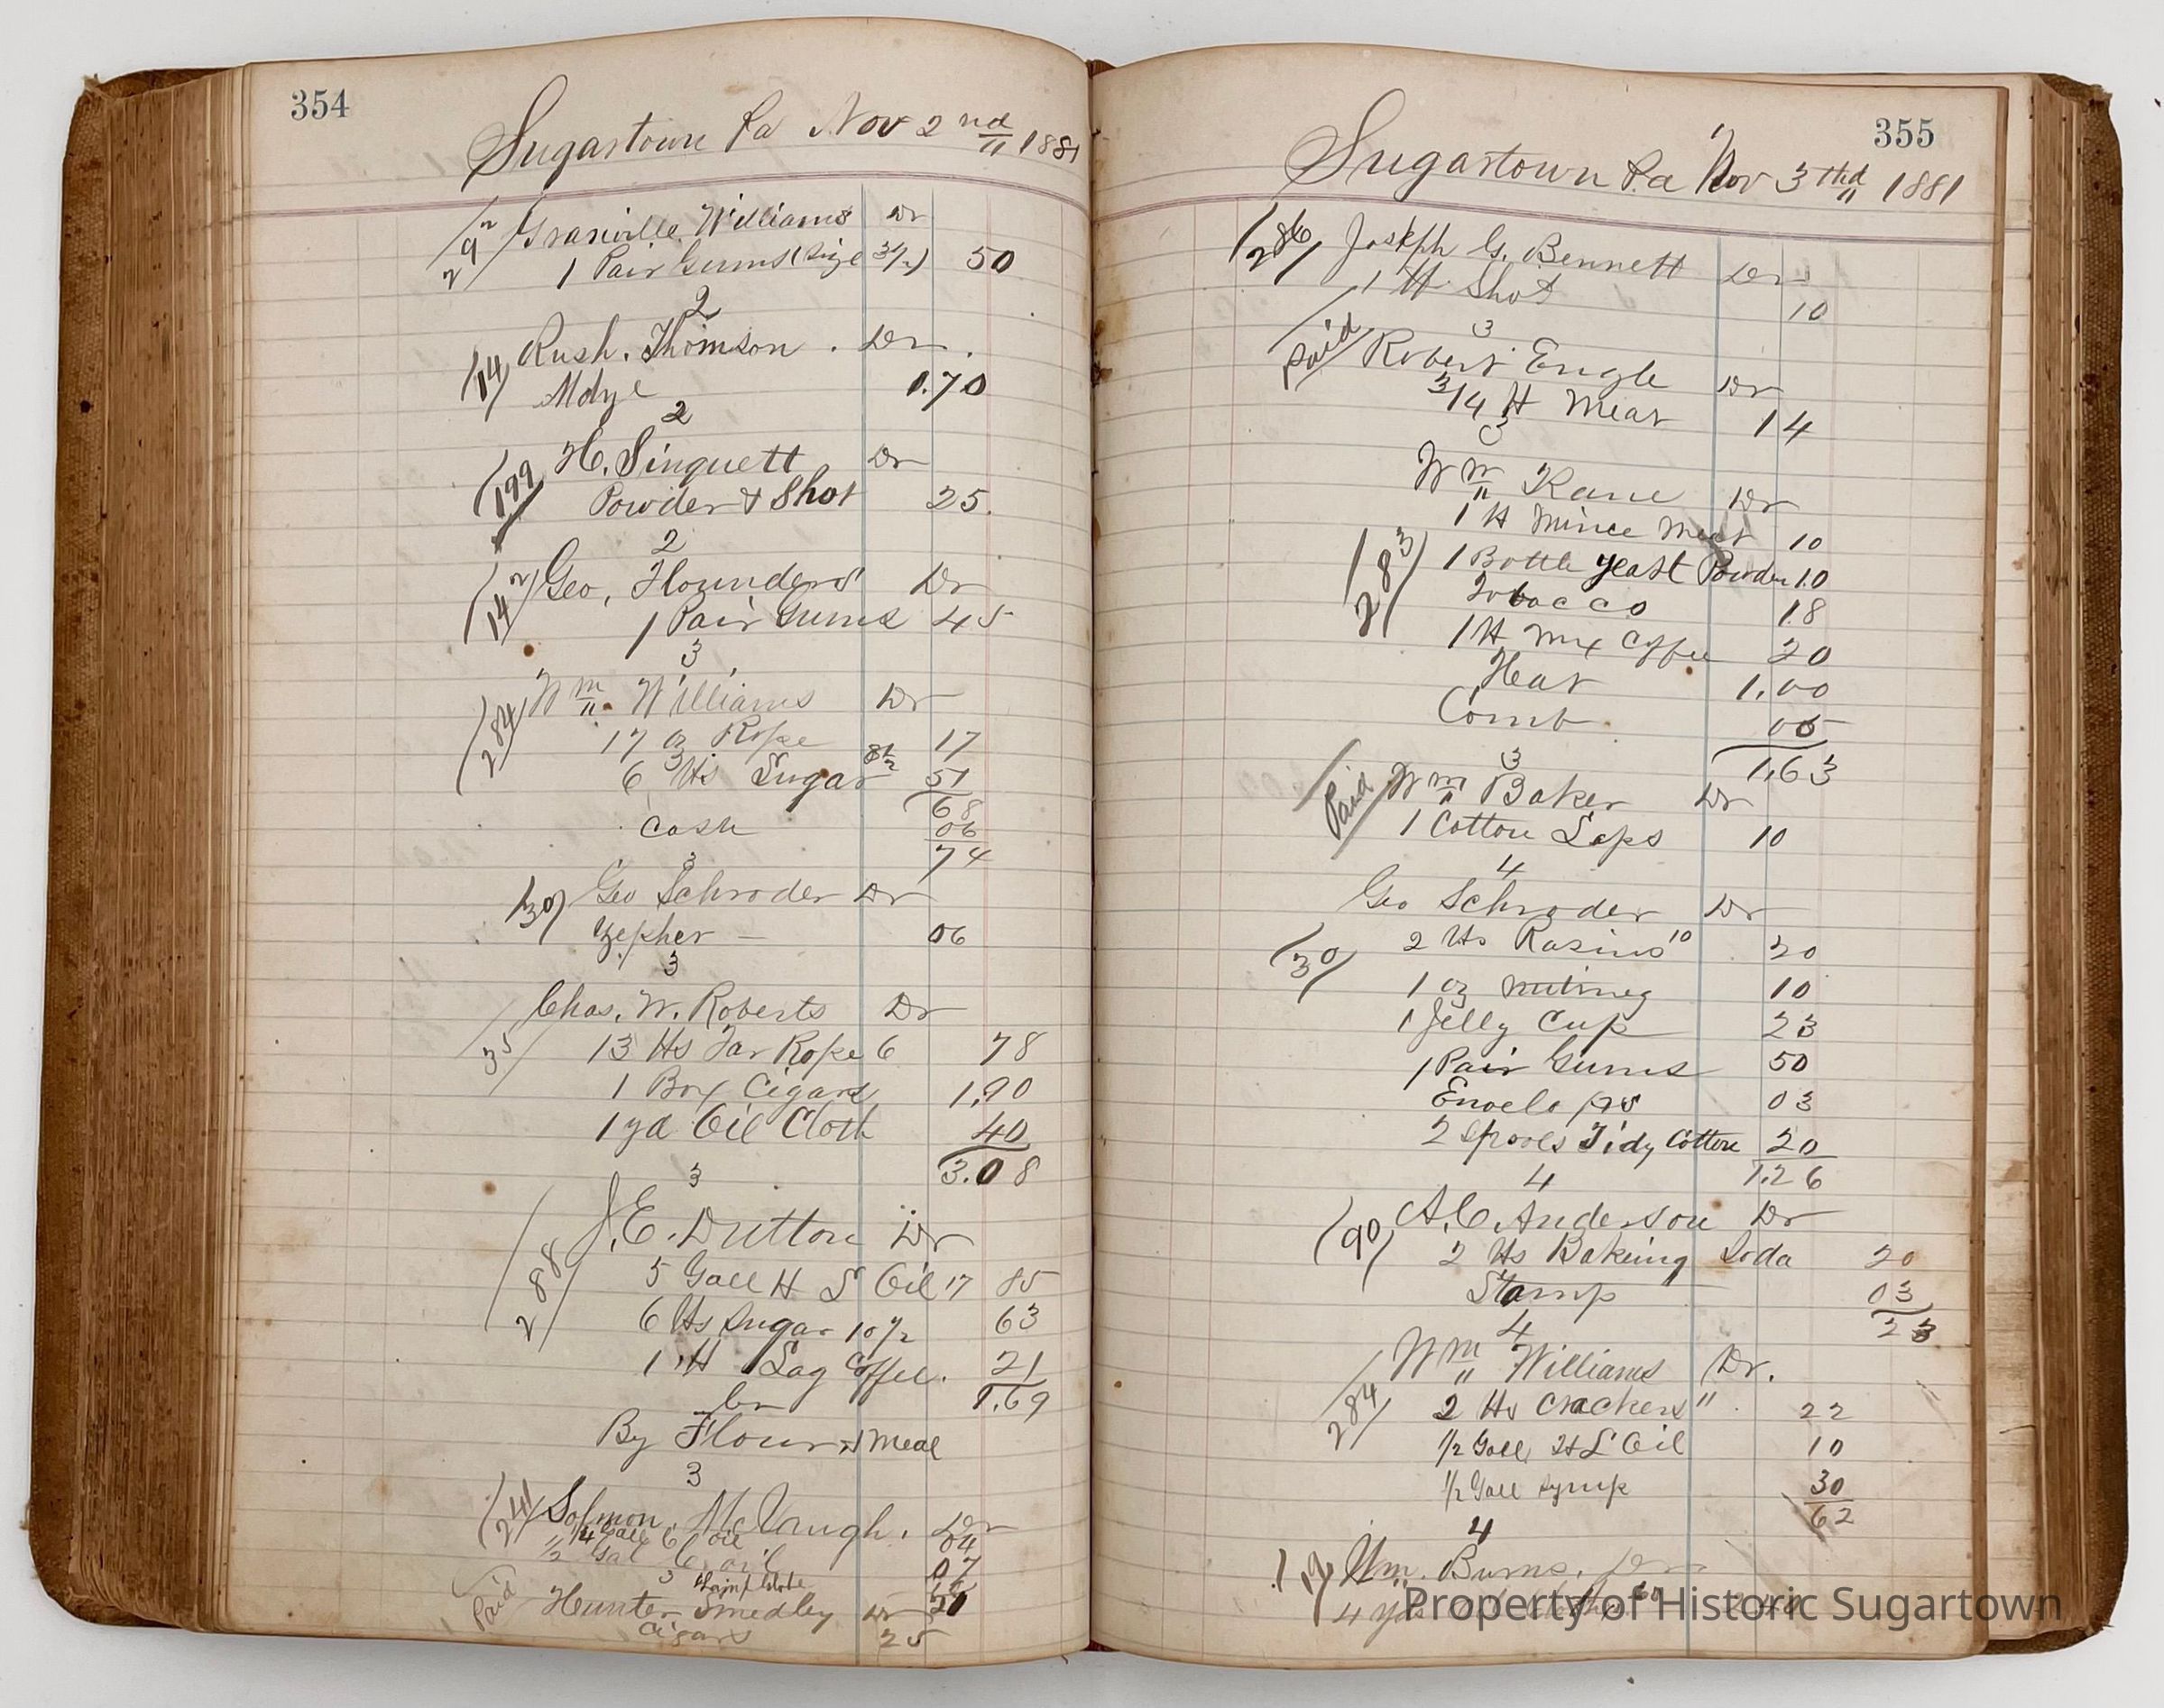 354
Sugartown Pa Nov 2nd 1881
292 Granville Williams Dr
1 Pair Gums (Size 3 1/2) 50
2
14 Rush. Thomson. Dr.
Mdze 1.70
2
199 H. Sinquett Dr
Powder & Shot 25.
2
142 Geo, Flounders Dr
1 Pair Gums 45
3
284 Wm Williams Dr
17 oz Rope 17
6 lbs Sugar 8 1/2 51
68
Cash 06
74
3
130 Geo Schroder Dr
Zepher — 06
3
Chas. W. Roberts Dr
35 13 lbs Tar Rope 6 78
1 Box Cigars 1,90
1 yd Oil Cloth 40
3.08
3
J. E. Dutton Dr
288 5 Gall H S Oil 17 85
6 lbs Sugar 10 1/2 63
1 lb Lag Coffee. 21
1.69
Cr
By Flour & Meal
3
241 Solmon McVaugh. Dr
1/4 Gall C oil 04
1/2 Gal C. oil 07
3
Paid Hunter Smedley Dr
Cigars 25
355
Sugartown Pa Nov 3thd 1881
286 Joseph G. Bennett Dr
1 lb Shot 10
3
Paid Robert Engle Dr
3/4 lb Meat 14
3
Wm Kane Dr
1 lb Mince Meat 10
283 1 Bottle Yeast Powder 10
Tobacco 18
1 lb Mix Coffee 20
Hat 1.00
Comb 05
1,63
3
Paid Wm Baker Dr
1 Cotton Laps 10
4
Geo Schroder Dr
2 lbs Rasins 10 20
130 1 oz nutmeg 10
1 Jelly Cup 23
1 Pair Gums 50
Envelopes 03
2 Spools Tidy Cotton 20
1.26
4
190 A. C. Anderson Dr
2 lbs Bakeing Soda 20
Stamp 03
23
4
Wm Williams Dr.
284 2 lbs Crackers 11 22
1/2 Gall H L Oil 10
1/2 Gall Syrup 30
62
4
Wm. Burns. Dr
4 yds
Property of Historic Sugartown